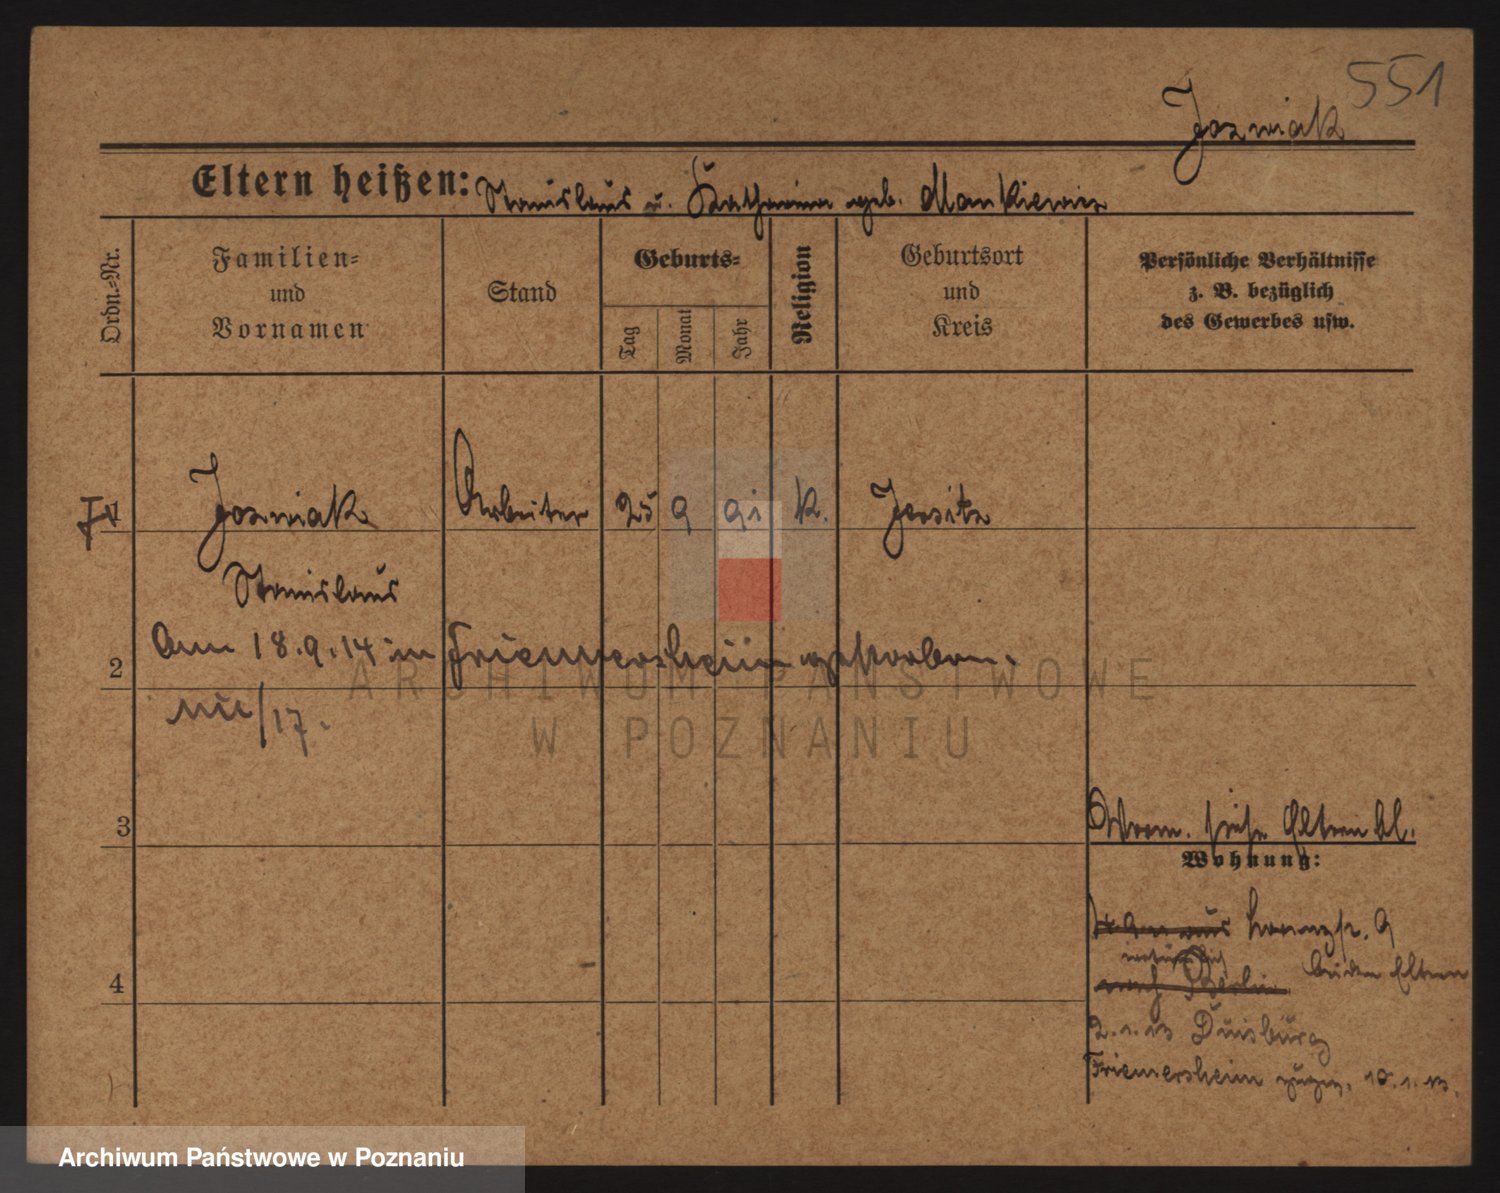 551
Jozwiak
Eltern heißen: Stanislaus u. Katharina geb. Mankiewicz
Ordn.-Nr.
Familien-
und
Vornamen
Stand
Geburts-
Tag
Monat
Jahr
Religion
Geburtsort
und
Kreis
Persönliche Verhältnisse
z. B. bezüglich
des Gewerbes usw.
1 Jozwiak Arbeiter 25 9 91 k. Jersitz
Stanislaus
2 Am 18.9.14 in Friemersheim gestorben.
/17.
3
Eltern bl.
Wohnung:
9
nach Berlin
bei den Eltern
4
2.1.13 Duisburg
Friemersheim 10.1.13.
ARCHIWUM PAŃSTWOWE
W POZNANIU
Archiwum Państwowe w Poznaniu